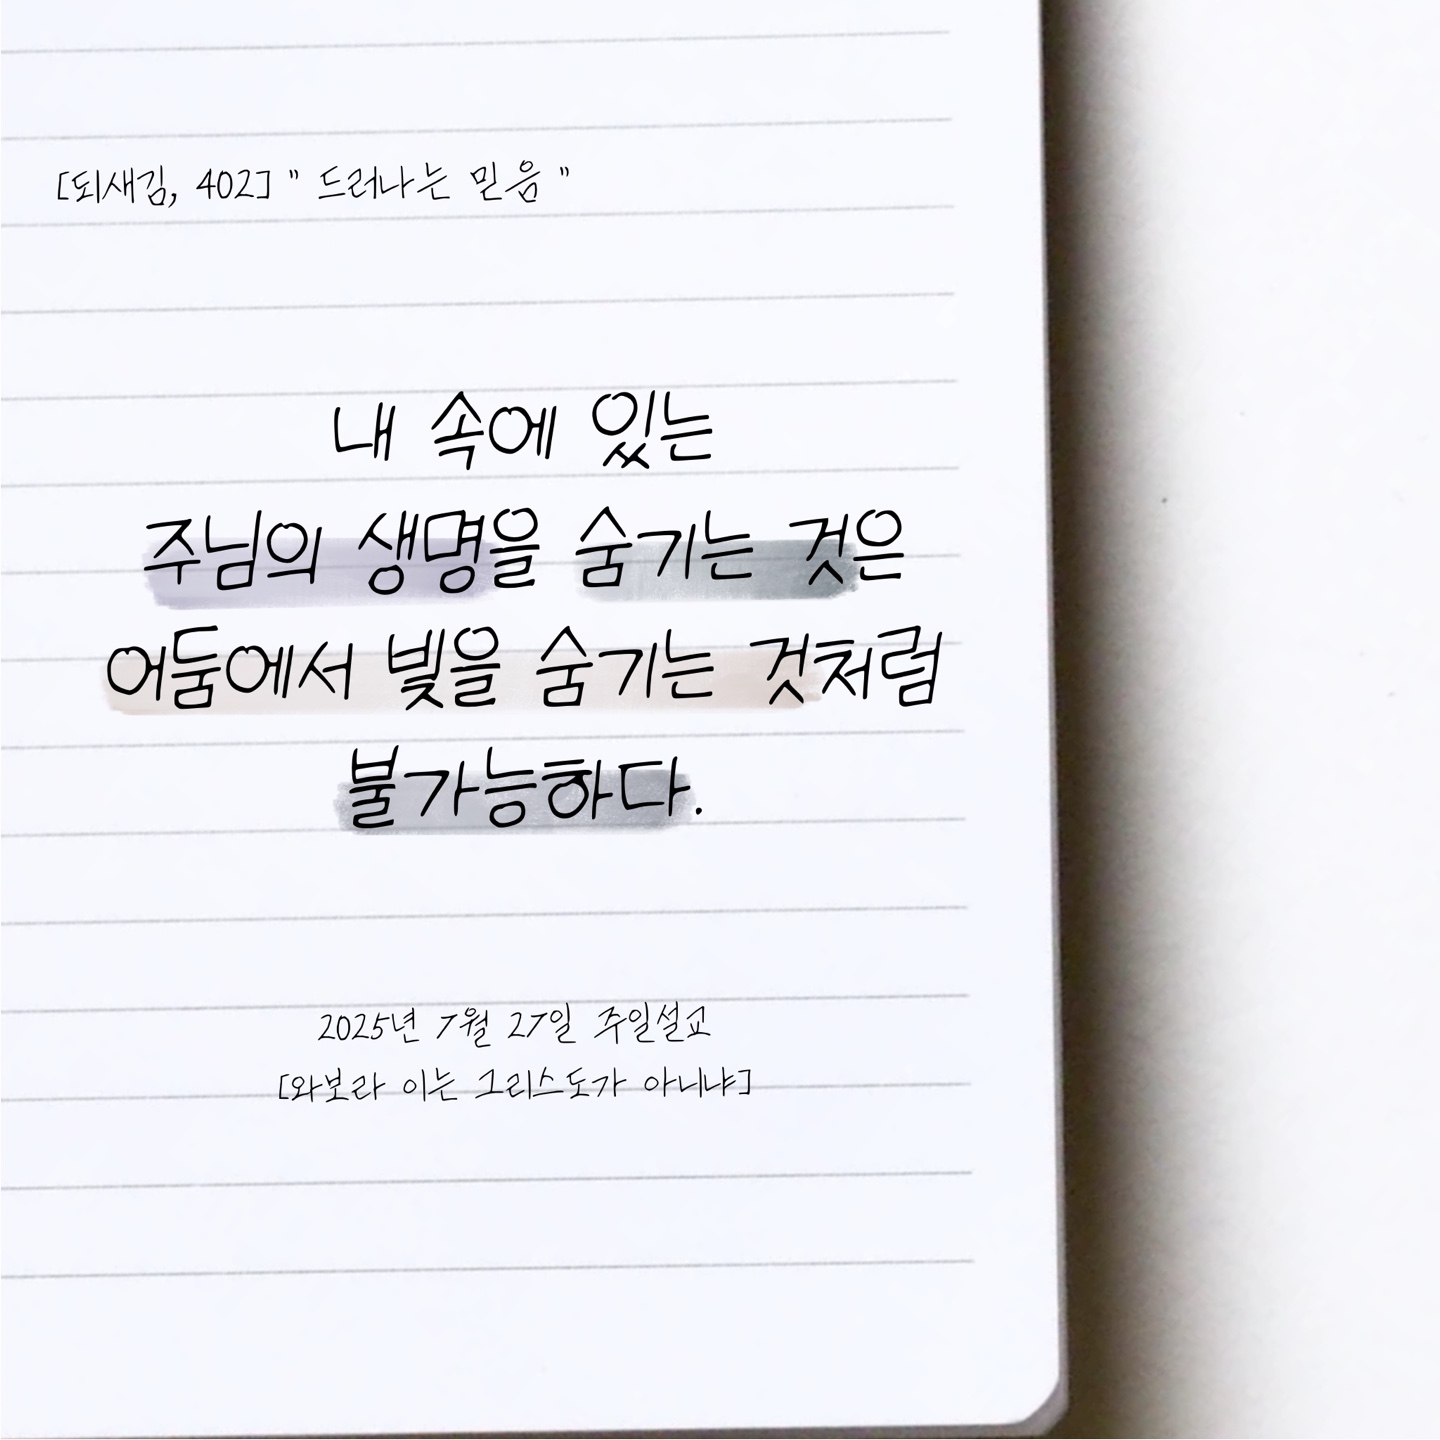 [되새김, 402] " 드러나는 믿음 "
내 속에 있는
주님의 생명을 숨기는 것은
어둠에서 빛을 숨기는 것처럼
불가능하다.
2025년 7월 27일 주일설교
[와보라 이는 그리스도가 아니냐]